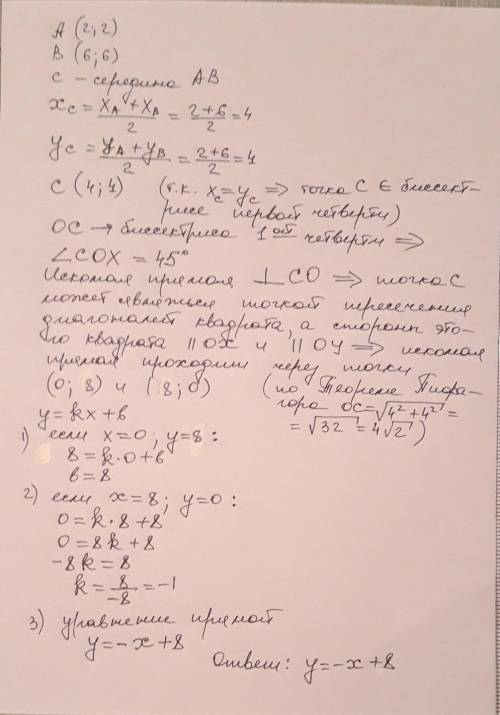 A (2; 2)
B (6; 6)
C – середина AB
x_C = (x_A + x_B)/2 = (2+6)/2 = 4
y_C = (y_A + y_B)/2 = (2+6)/2 = 4
C (4; 4) (т.к. x_C = y_C ⇒ точка C ∈ биссект-
рисе первой четверти)
OC → биссектриса 1ой четверти ⇒
∠COX = 45°
Искомая прямая ⊥ CO ⇒ точка C
может являться точкой пересечения
диагоналей квадрата, а стороны это-
го квадрата || OX и || OY ⇒ искомая
прямая проходит через точки
(0; 8) и (8; 0) (по Теореме Пифа-
гора OC = √(4² + 4²) =
= √32 = 4√2)
y = kx + b
1) если x = 0; y = 8:
8 = k·0 + b
b = 8
2) если x = 8; y = 0:
0 = k·8 + 8
0 = 8k + 8
-8k = 8
k = 8/-8 = -1
3) уравнение прямой
y = -x + 8
Ответ: y = -x + 8